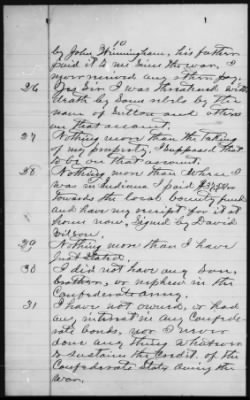 1
10
by John Winningham, his father
paid it to me since the war. I
never received any other pay.
26 Yes Sir I was threatened with
death by some rebels by the
name of and others
on that account.
27 Nothing more than the taking
of my property, I supposed that
to be on that account.
28 Nothing more than where I
was in Indiana I paid
towards the local bounty fund
and have my receipt for it at
home now, signed by David
Wilson.
29 Nothing more than I have
just stated.
30 I did not have any son,
brother, or nephew in the
Confederate army.
31 I have not owned, or had
any interest in any Confede-
rate bonds, nor I never
done any thing whatsoever
to sustain the credit of the
Confederate States during the
war.